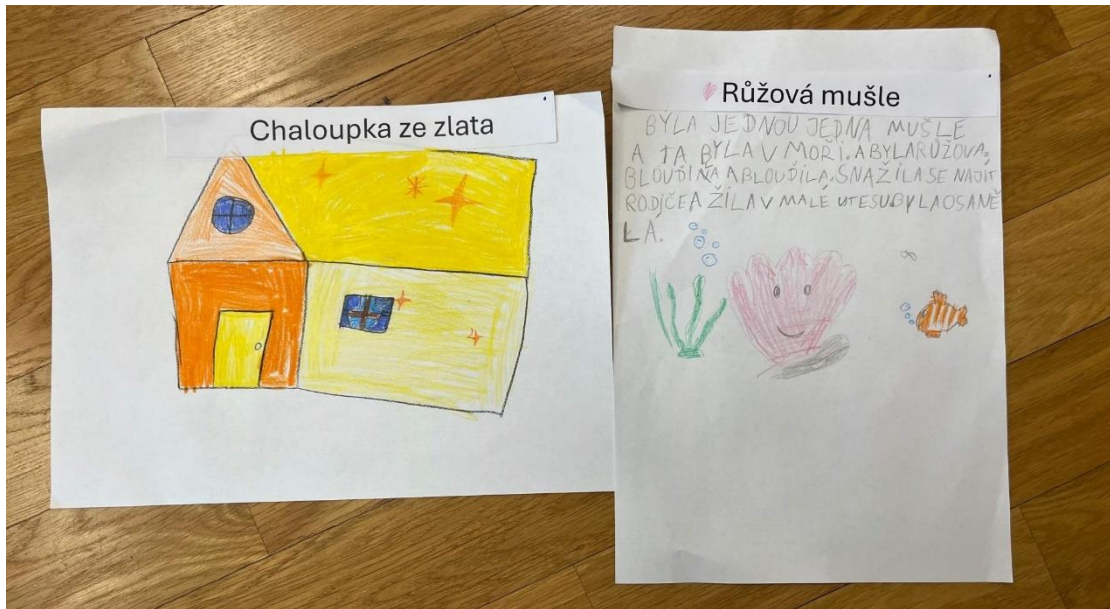 Chaloupka ze zlata
Růžová mušle
BYLA JEDNOU JEDNA MUŠLE
A TA BYLA V MOŘI. A BYLA RŮŽOVÁ.
BLOUDILA A BLOUDILA. SNAŽILA SE NAJÍT
RODIČE A ŽILA V MALÉ UTESU BYLA OSANĚ
LÁ.